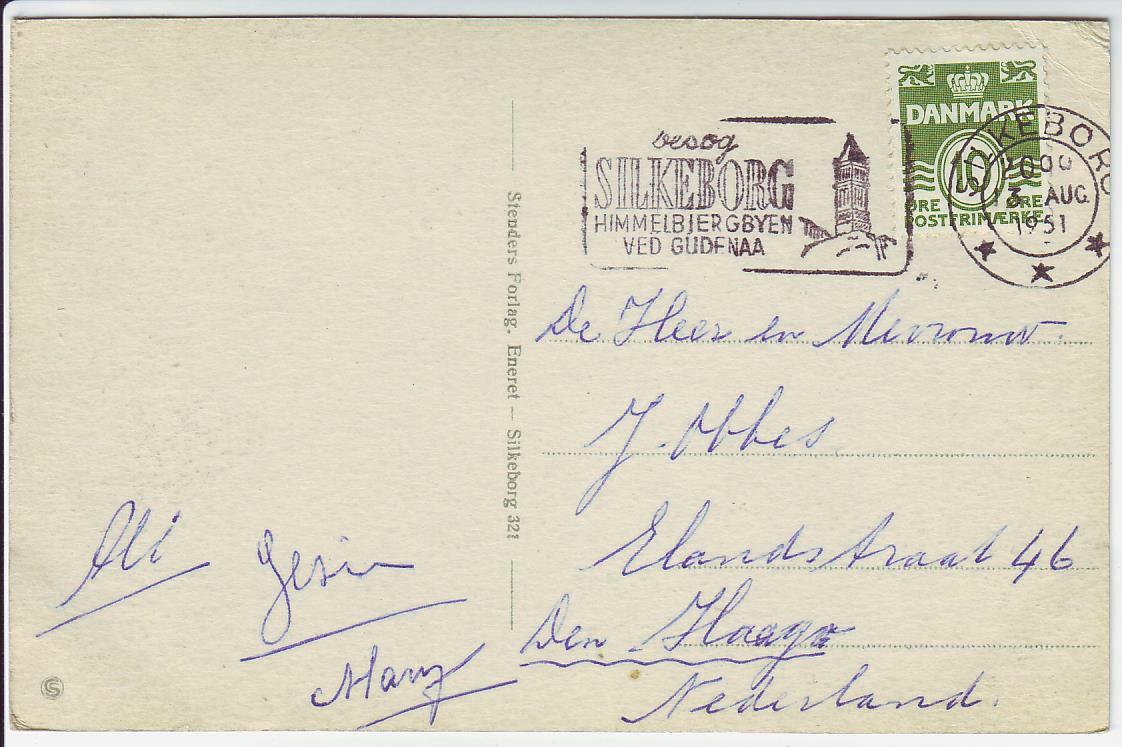 DANMARK
10
ØRE ØRE
POSTFRIMÆRKE
SILKEBORG
AUG
1951
besøg
SILKEBORG
HIMMELBJERGBYEN
VED GUDENAA
Stenders Forlag. Eneret — Silkeborg
De Heer en Mevrouw.
J. Obbes
Elandstraat 46
Den Haag
Nederland.
Ali
Gesin